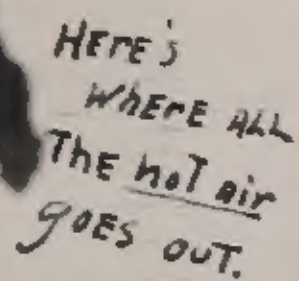 HErE's
WhErE ALL
ThE hoT air
gOEs ouT.